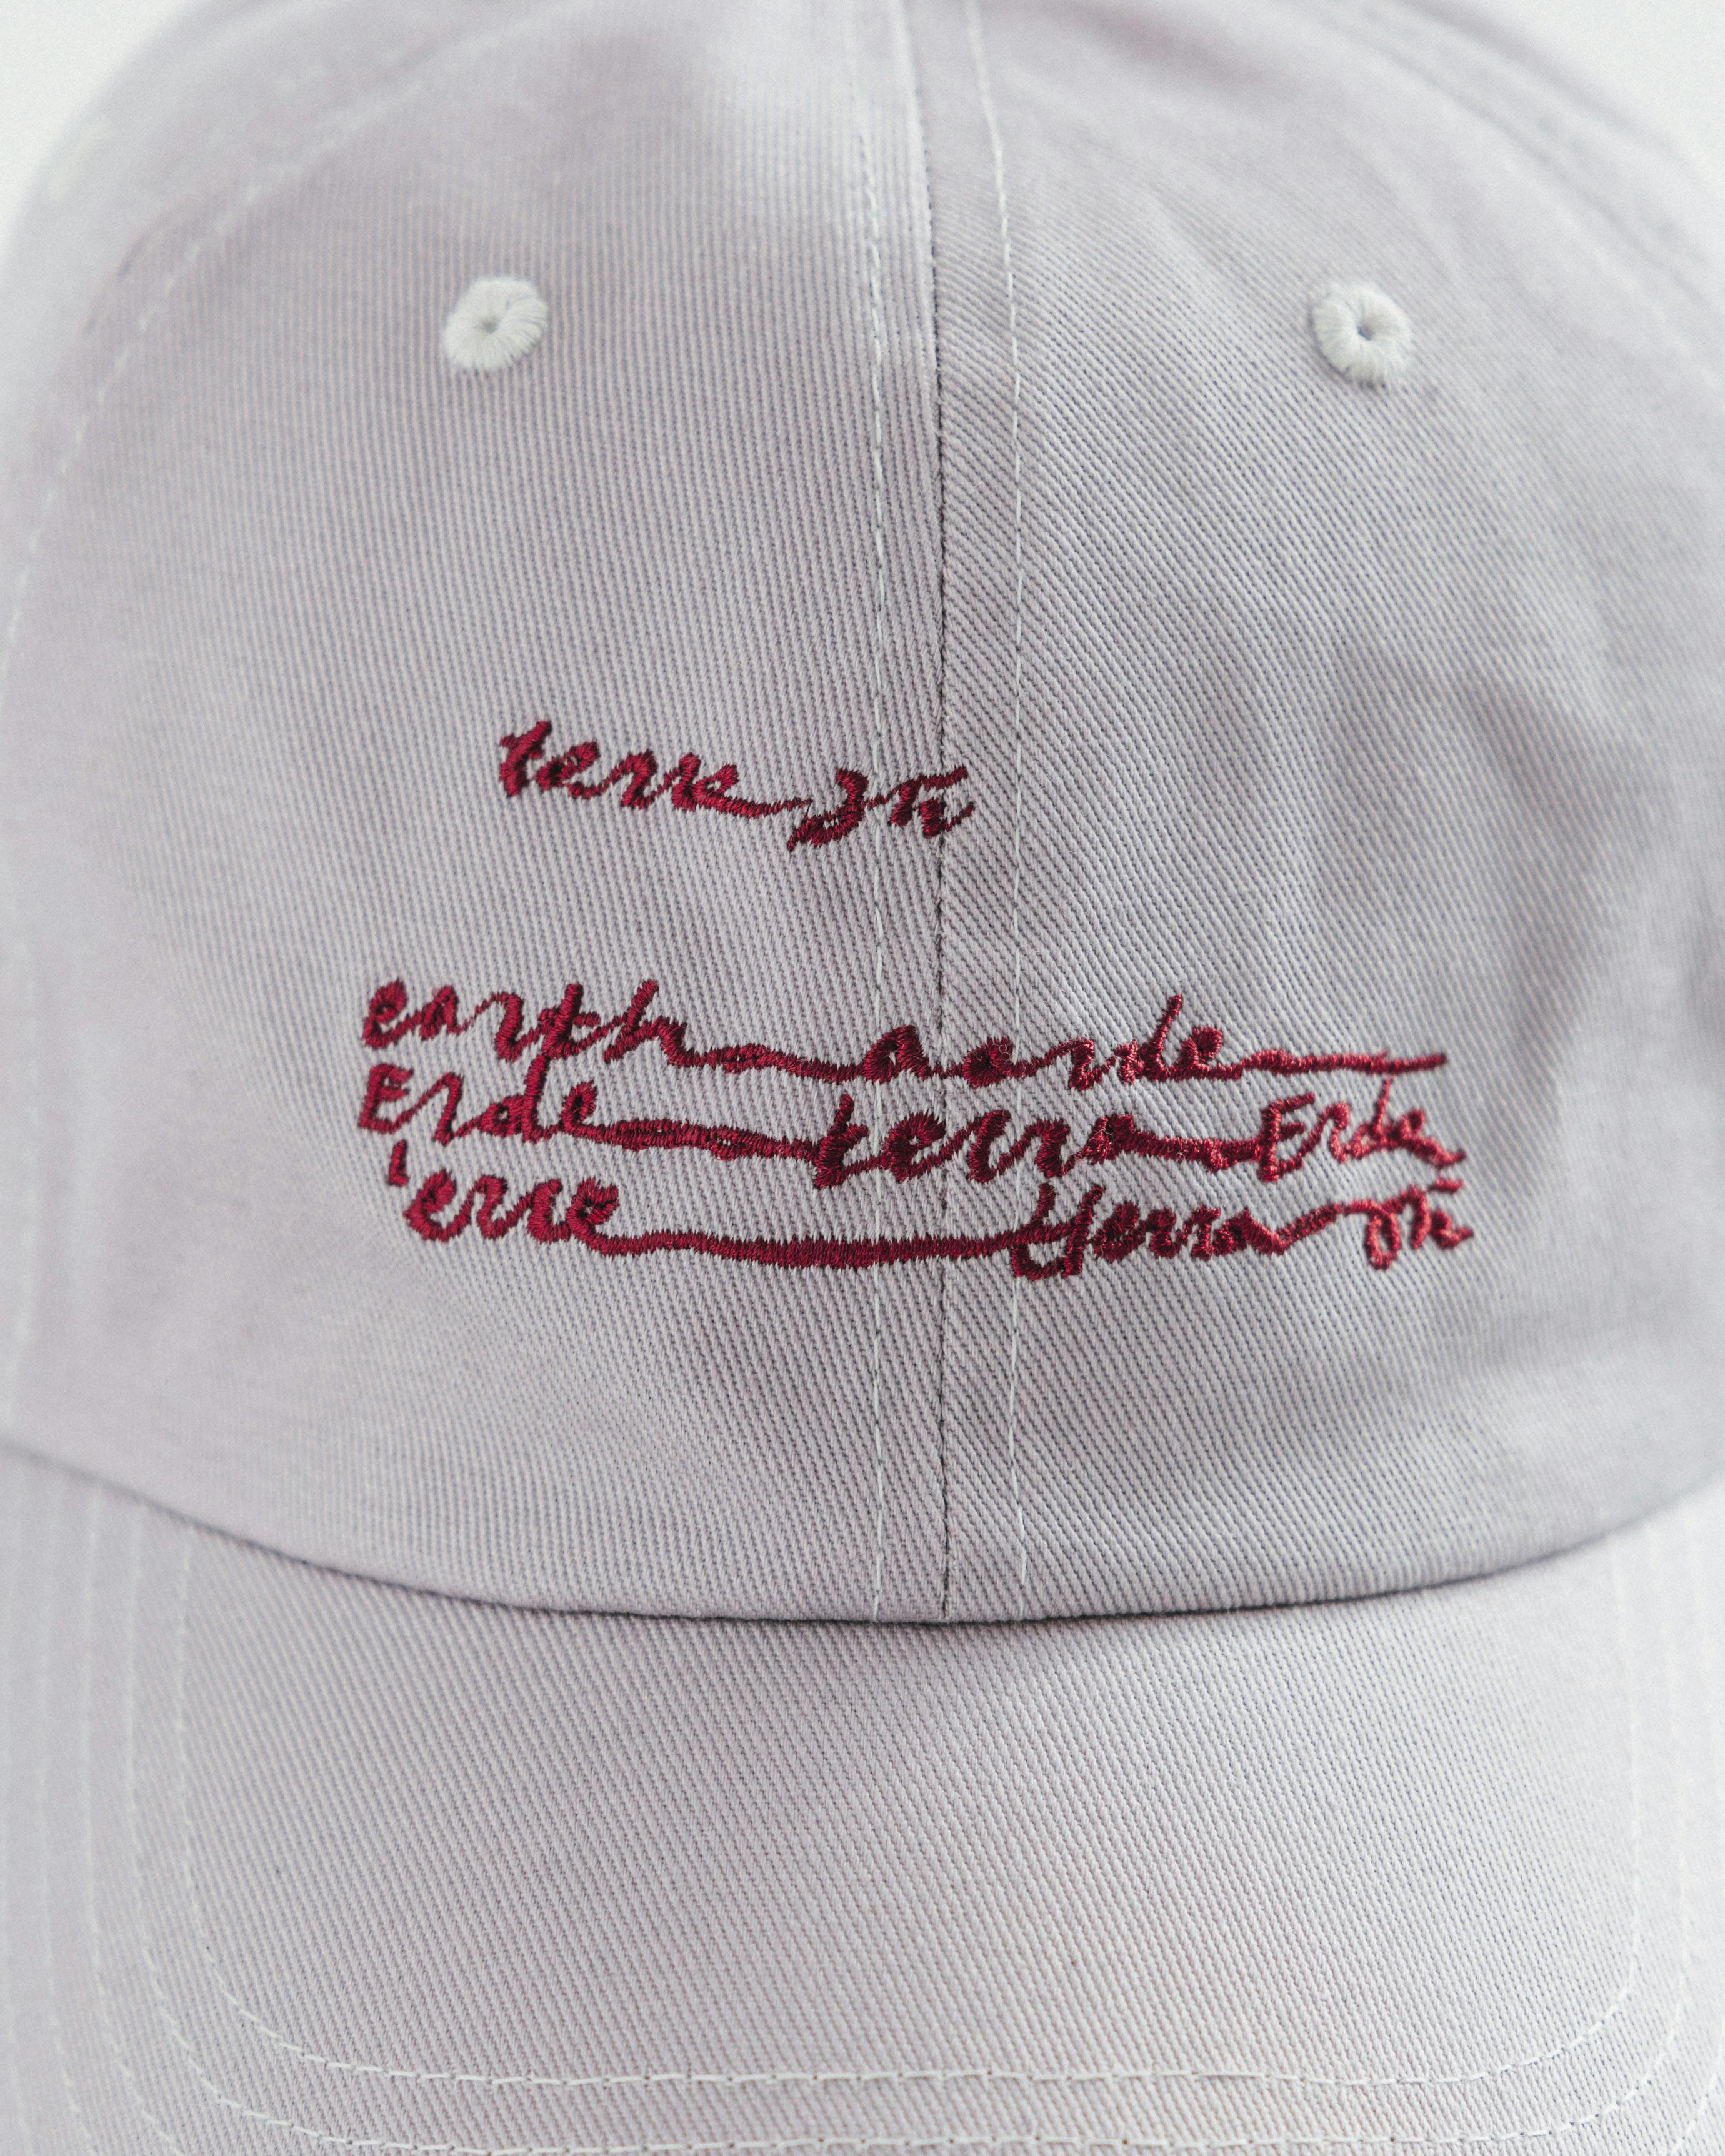 terre
earth aarde
Erde terra Erde
Terre